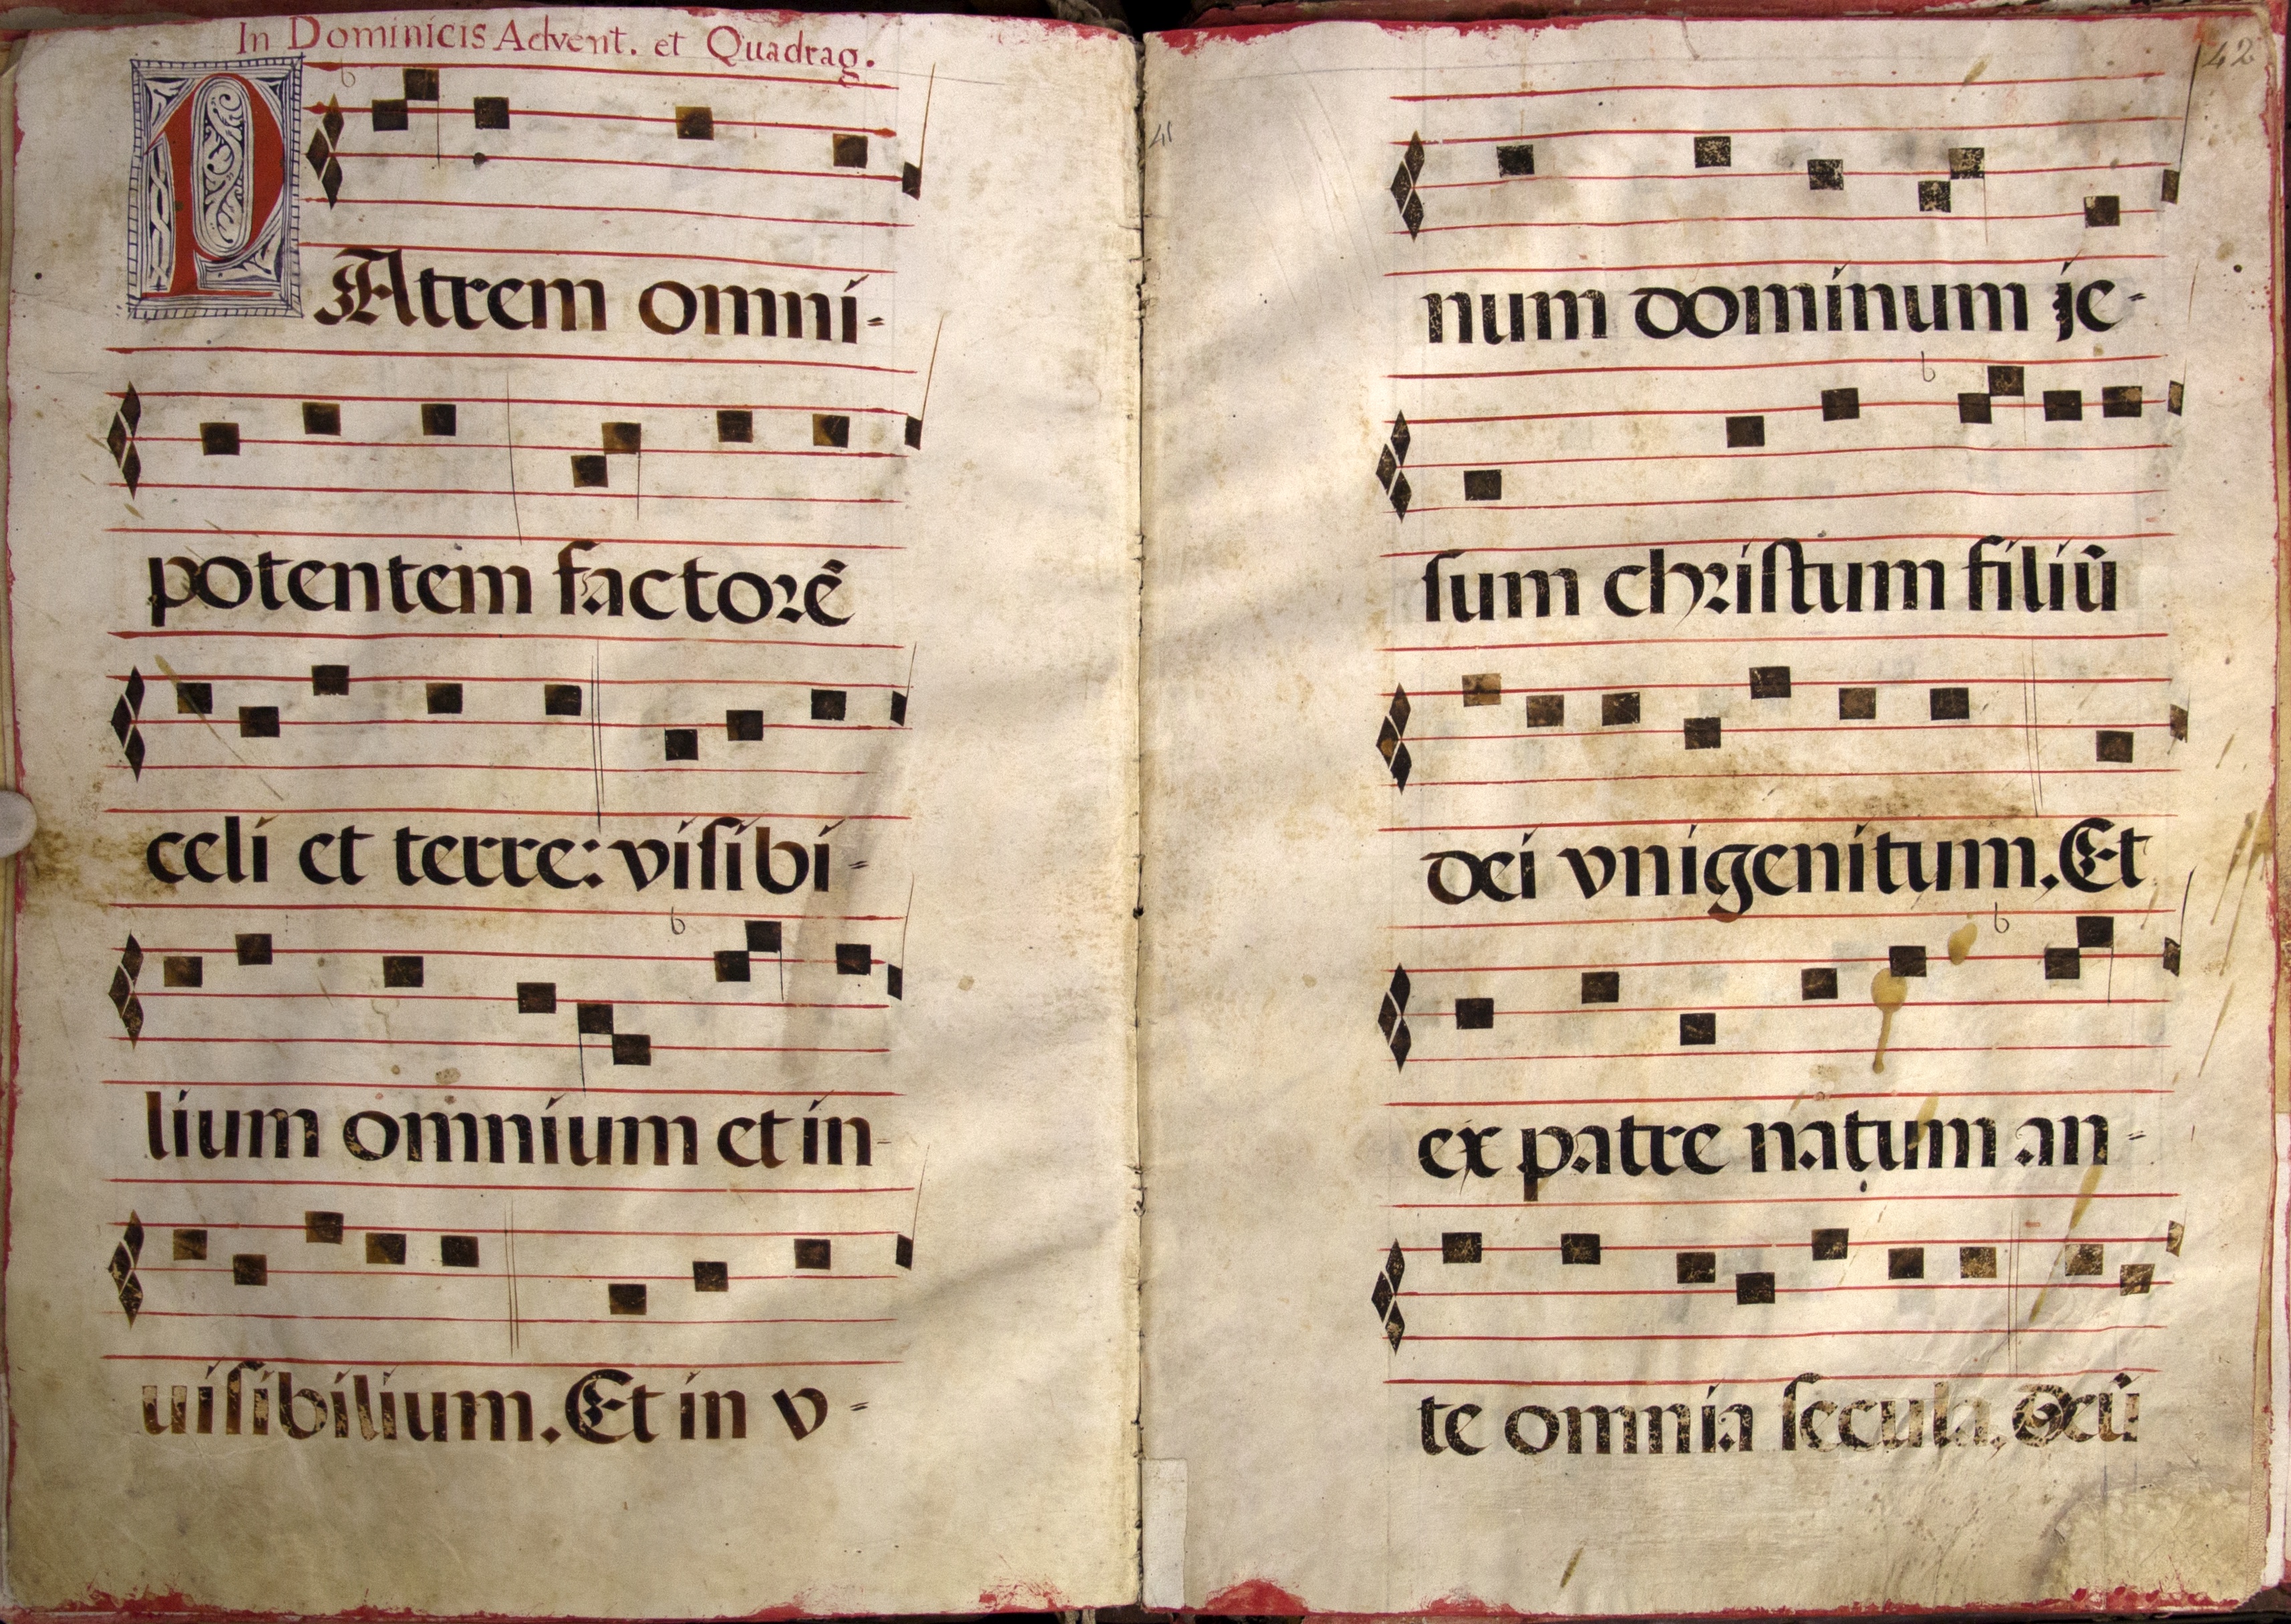 In Dominicis Advent. et Quadrag.
PAtrem omni-
potentem factorē
celi et terre: visibi-
lium omnium et in-
uisibilium. Et in v-
41
42
num dominum je-
sum christum filiū
dei vnigenitum. Et
ex patre natum an-
te omnia secula. Deū